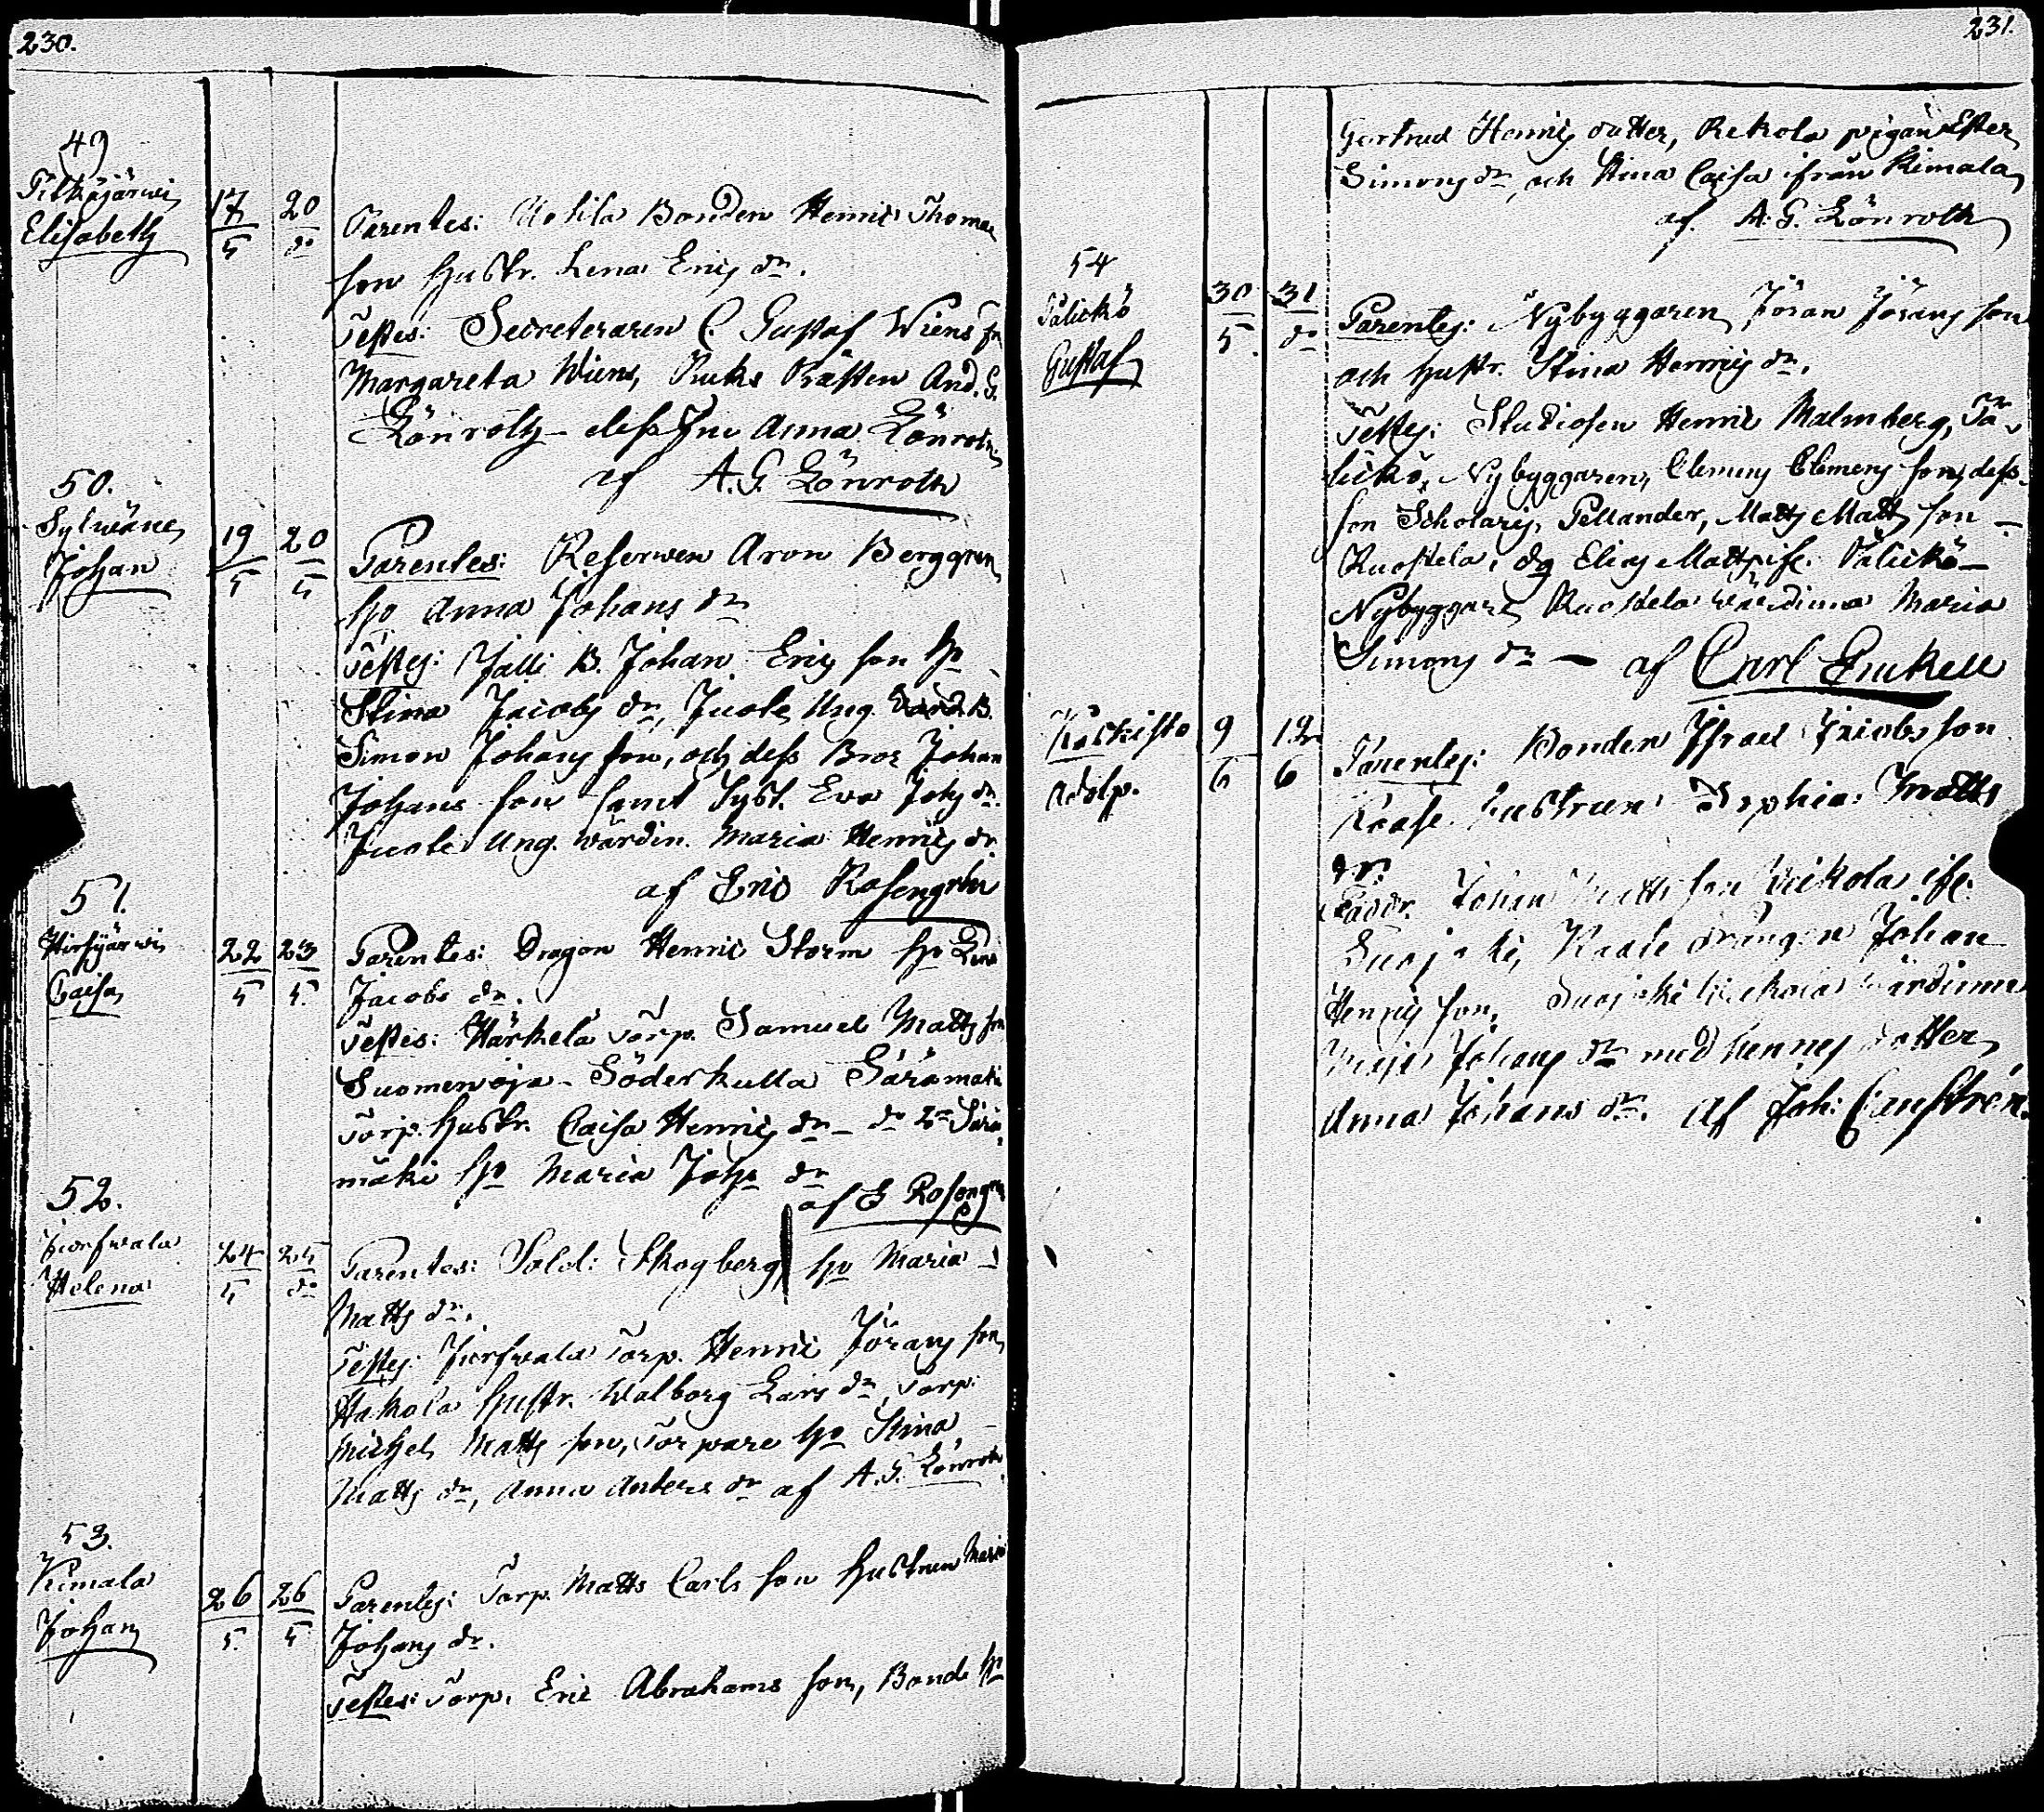 230.
49
Pitkäjärwi
Elisabeth
17/5 20/do
Parentes: Uotila Bonden Henric Thomas
son hustr. Lena Erics dr.
Testes: Secreteraren C. Gustaf Wiens fr
Margareta Wiens, Ruks Rätten And. G.
Lönroth dess Fru Anna Lönroth
af A. G. Lönroth
50.
Sylwäne
Johan
19/5 20/5
Parentes: Reserwen Aron Berggren
ho Anna Johans dr
Testes: Jalli B. Johan Erics son ho
Stina Jacobs dr, Juole Ung. B.
Simon Johans son, och dess Bror Johan
Johans son samt Syst. Eva Johs dr.
Juole Ung. wärdin. Maria Henrics dr
af Eric Rosengrén
51.
Hirsjärwi
Caisa
22/5 23/5
Parentes: Dragon Henric Storm ho Lena
Jacobs dr.
Testes: Härkelä Torp. Samuel Matts son
Suomenoja Söderkulla Särämäki
Torp. hustr. Caisa Henrics dr do Särä
mäki ho Maria Johs dr
af E Rosengren
52.
Helena
24/5 25/do
Parentes: Sold: Skogberg ho Maria
Matts dr.
Testes: Torp. Henric Jörans son
Hakola hustr. Walborg Lars dr, Torp.
Michel Matts son, Torpare ho Stina
Matts dr, Anna Anders dr af A. G. Lönroth
53.
Kimala
Johan
26/5 26/5
Parentes: Torp. Matts Carls son hustrun Maria
Johans dr.
Testes: Torp. Eric Abrahams son, Bonde ho
231.
Gertrud Henrics dotter, Rekola pigan Ester
Simons dr och Stina Caisa ifrån Kimala
af. A. G. Lönroth
54
Pälickö
Gustaf
30/5 31/do
Parentes: Nybyggaren Jöran Jörans son
och hustr. Stina Henrics dr.
Testes: Studiosen Henric Malmberg, Pä
lickö, Nybyggaren, Clemens Clemens son, dess
son Scholaris, Pellander, Matts Matts son
Ruostela, dg Elias Mattss. if. Pälickö
Nybyggare, Ruostela wärdinna Maria
Simons dr af Carl Enckell
Koskisto
Adolp.
9/6 12/6
Parentes: Bonden Israel Jacobs son
Kaase hustrun Sophia Matts
dr.
Faddr. Johan Matts son Wekola if.
Suojoki, Kaase drängen Johan
Henrics son, Suojoki Wekola wärdinna
Maja Johans dr med hennes dotter
Anna Johans dr. af Joh: Canstrén.